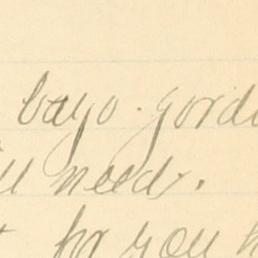 bayo. gord
need.
for you h